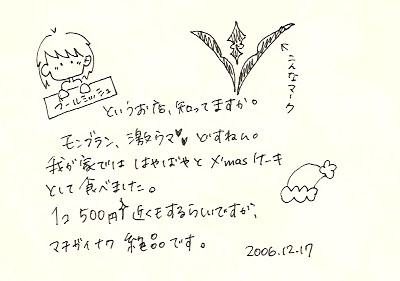 フールミッシュ
こんなマーク
というお店、知ってますか。
モンブラン、激ウマ♥♥ どすねん。
我が家では はやばやと X'masケーキ
として食べました。
1コ 500円 近くもするらしいですが、
マチガイナク 絶品です。
2006.12.17